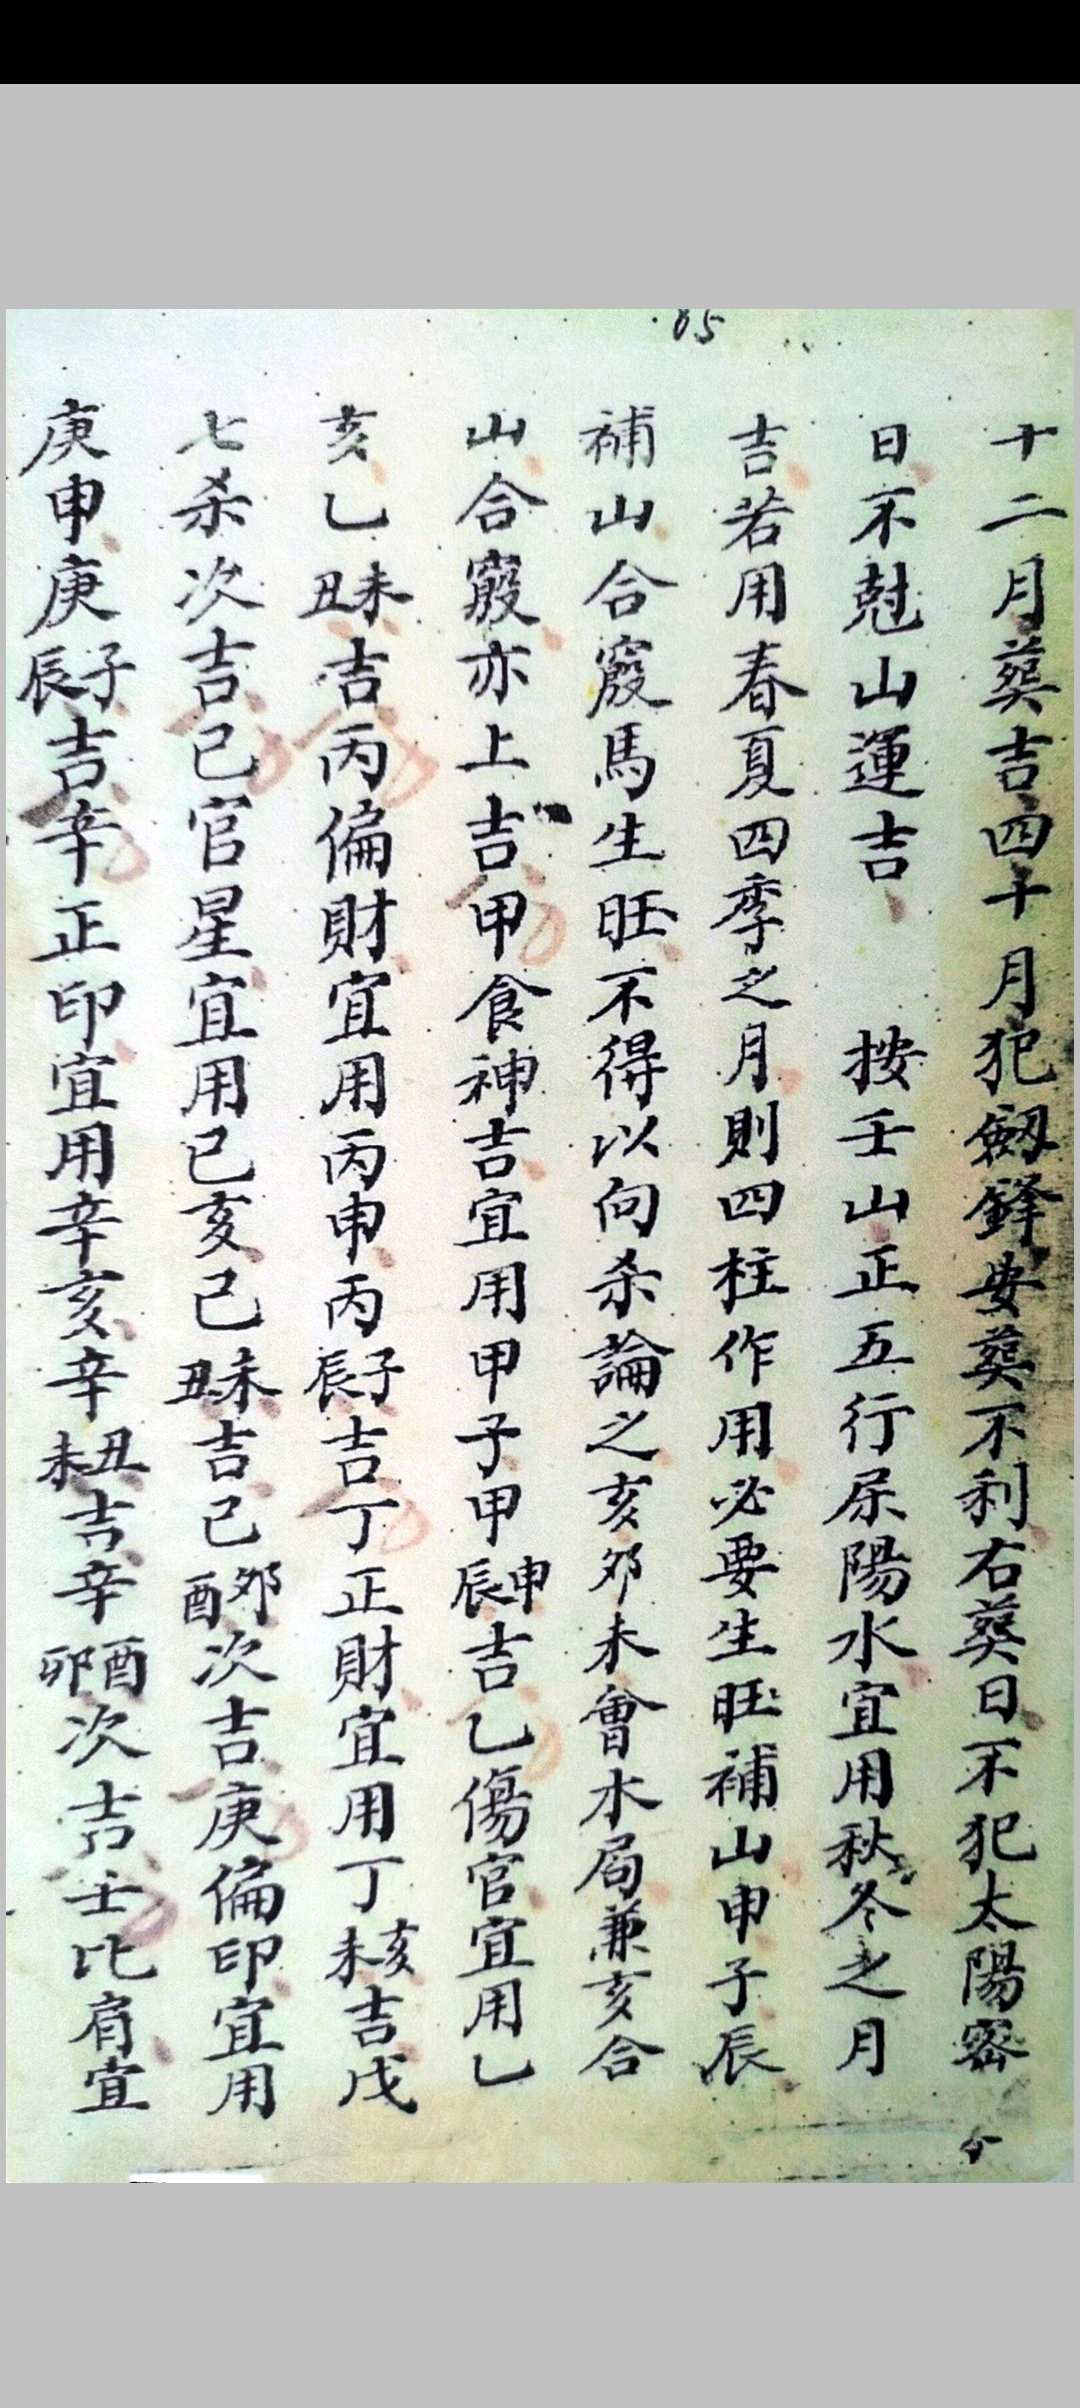 65
十二月葬吉四十月犯劔鋒安葬不利右葬日不犯太陽密
日不尅山運吉　按壬山正五行屎陽水宜用秋冬之月
吉若用春夏四季之月則四柱作用必要生旺補山申子辰
補山合馬生旺不得以向杀論之亥夘未會木局兼亥合
山合亦上吉甲食神吉宜用甲子甲申辰吉乙傷官宜用乙
亥乙未丑吉丙偏財宜用丙申丙子辰吉丁正財宜用丁亥未吉戊
七杀次吉己官星宜用己亥己未丑吉己夘酉次吉庚偏印宜用
庚申庚子辰吉辛正印宜用辛亥辛丑未吉辛酉卯次吉壬比肩宜